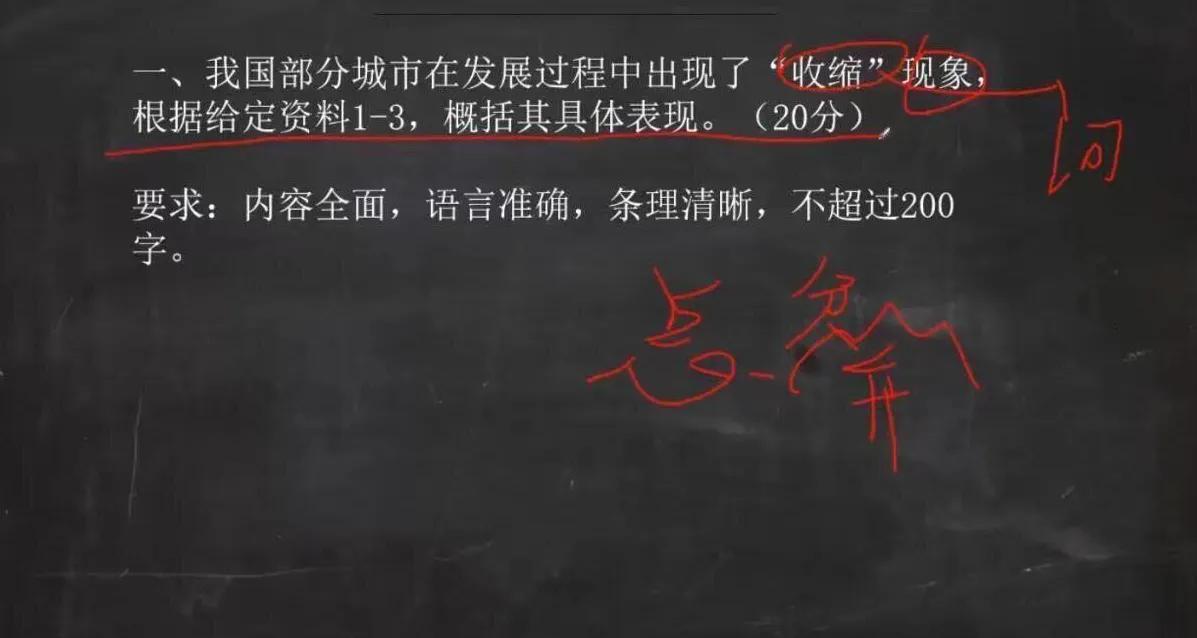 一、我国部分城市在发展过程中出现了“收缩”现象，
根据给定资料1-3，概括其具体表现。（20分）
要求：内容全面，语言准确，条理清晰，不超过200
字。